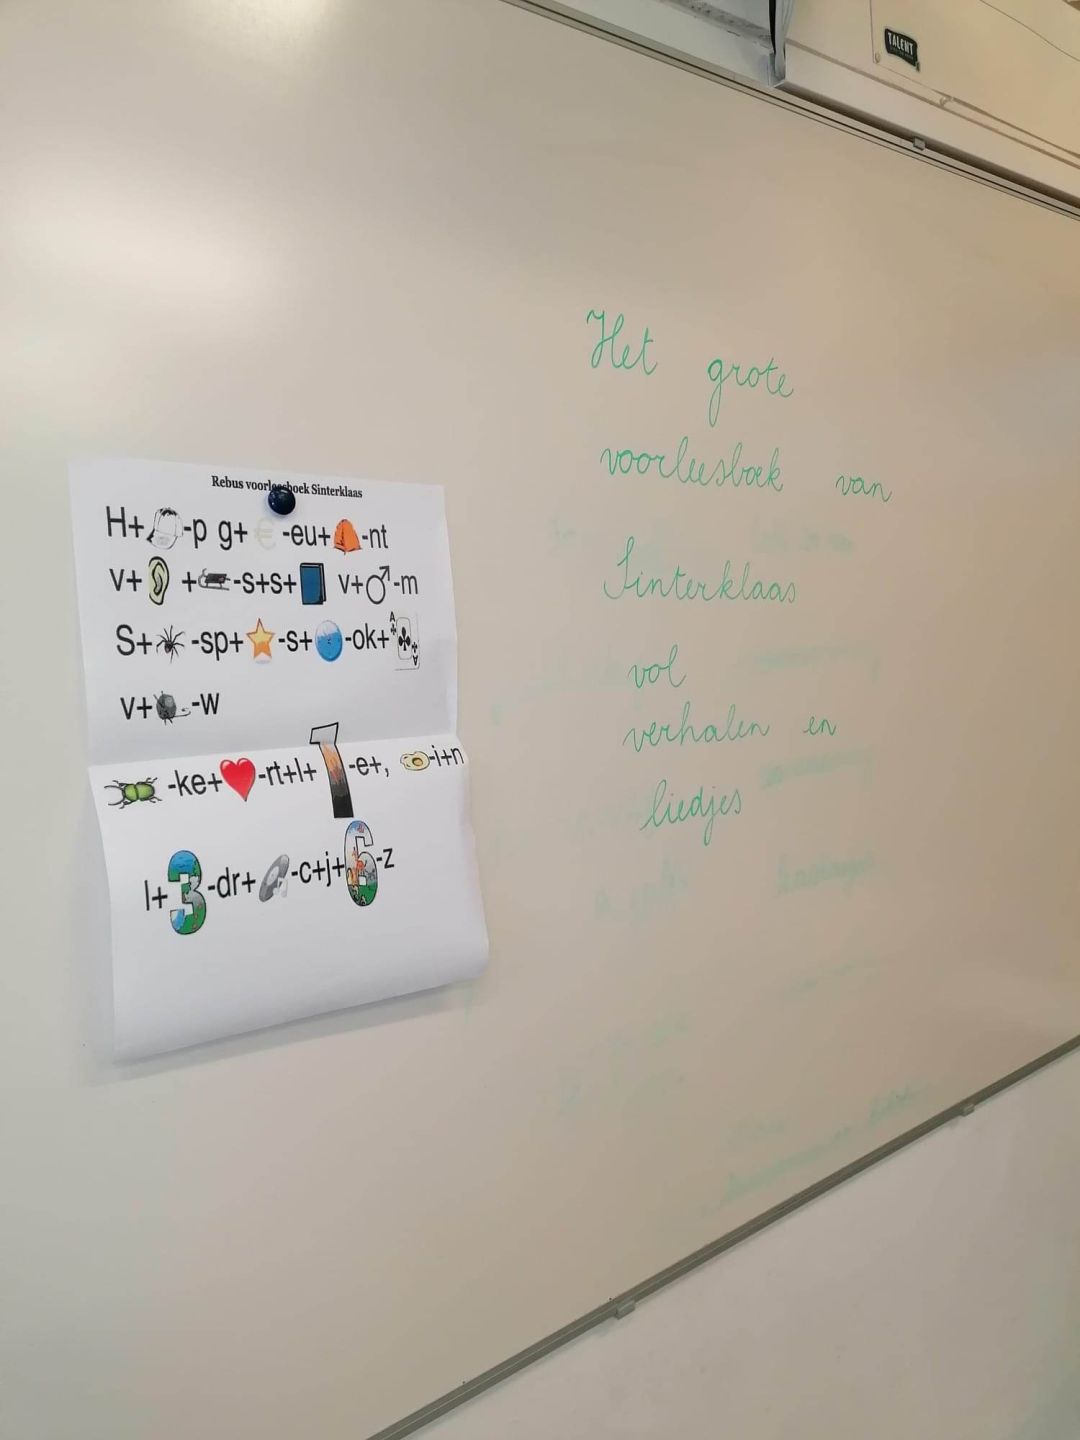 TALENT
Het grote
voorleesboek van
Sinterklaas
vol
verhalen en
liedjes
Rebus voorleesboek Sinterklaas
H+ -p g+ € -eu+ -nt
v+ + -s+s+ v+♂-m
S+ -sp+ -s+ -ok+ A A
v+ -w
-ke+ -rt+l+ 1 -e+, -i+n
l+ 3 -dr+ -c+j+ 6 -z